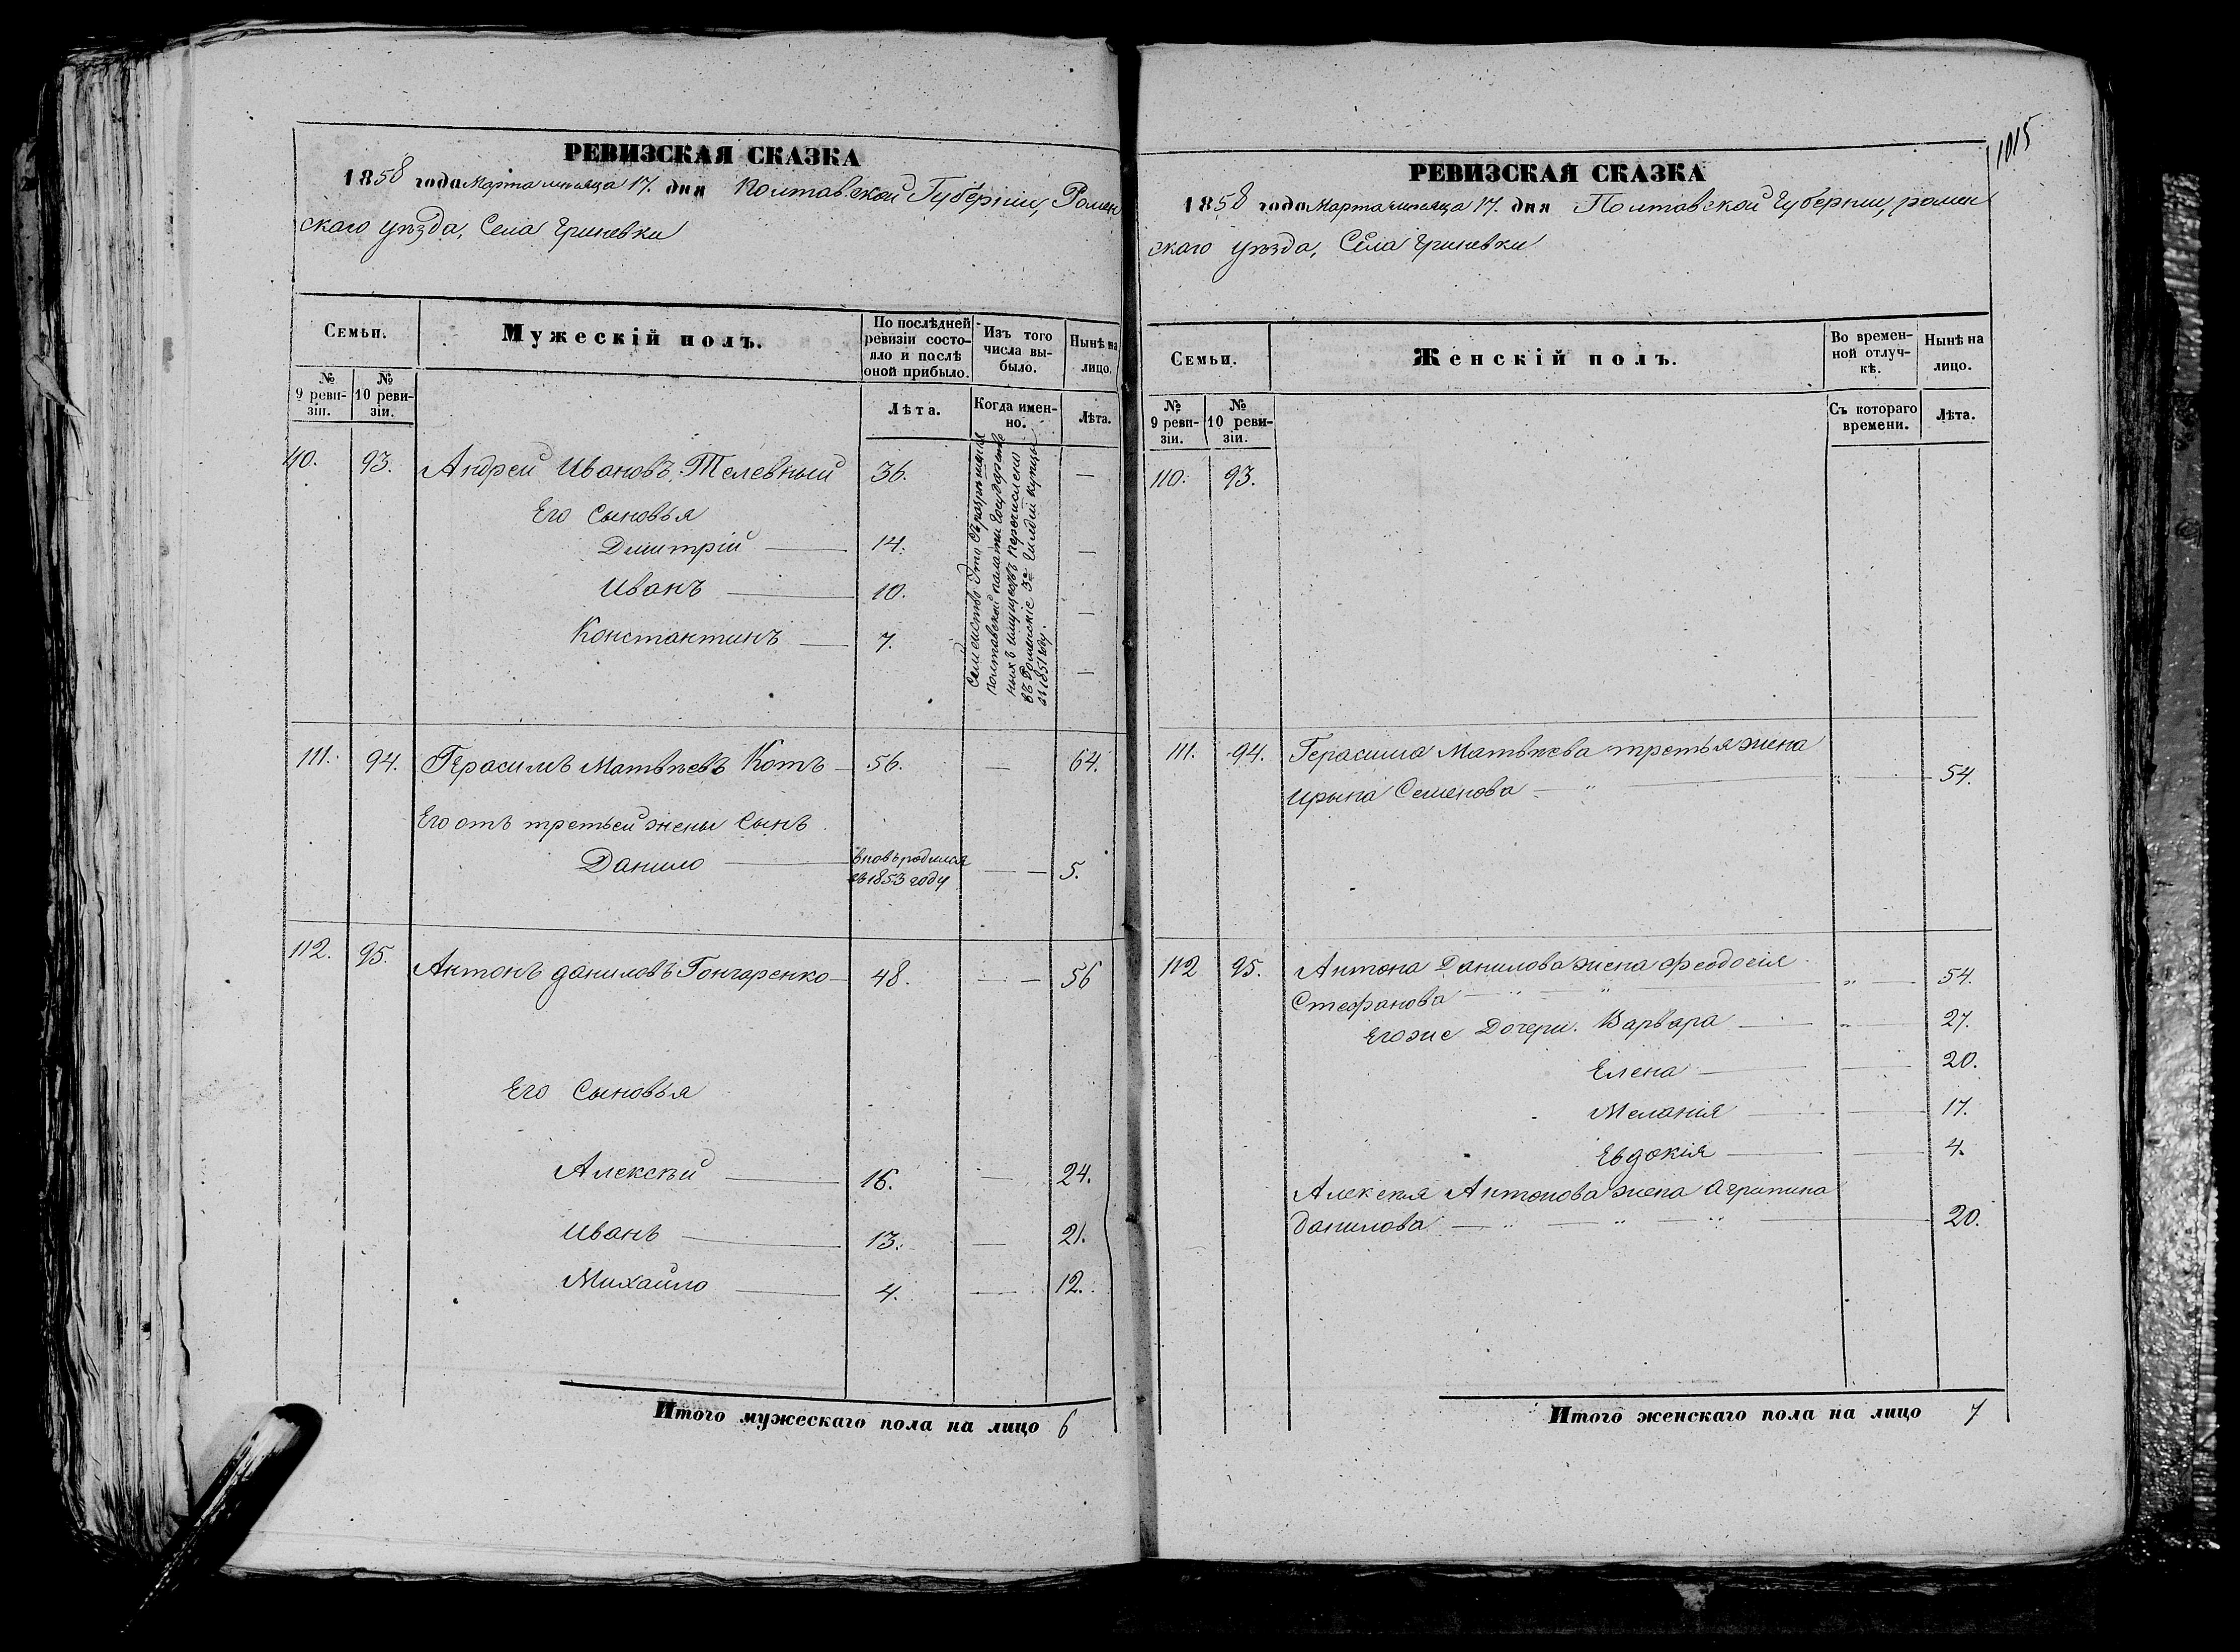 РЕВИЗСКАЯ СКАЗКА
1858 года Марта месяца 17. дня Полтавской Губернии, Ромен
скаго уѣзда, Села Гриневки
Семьи.
Мужескій полъ.
По послѣдней ревизіи состо-
яло и послѣ оной прибыло.
Изъ того числа вы-
было.
Нынѣ на лицо.
№ 9 реви-
зіи.
№ 10 реви-
зіи.
Лѣта.
Когда имен-
но.
Лѣта.
110. 93. Андрей Ивановъ Телевный 36. —
Его Сыновья
Дмитрій — 14. —
Иванъ — 10. —
Константинъ — 7. —
Семейство это съ разрѣшенія
Полтавской палаты Государствен
ныхъ имуществъ перечислено
въ Роменскіе 3й Гилдіи купцы
въ 1851 году.
111. 94. Герасимъ Матвѣевъ Котъ — 56. — 64.
Его отъ третьей жены Сынъ
Данило — вновь родился — — 5.
въ 1853 году
112. 95. Антонъ Даниловъ Гончаренко — 48. — — 56
Его Сыновья
Алексѣй — 16. — 24.
Иванъ — 13. — 21.
Михайло — 4. — 12.
Итого мужескаго пола на лицо 6
1015
РЕВИЗСКАЯ СКАЗКА
1858 года Марта месяца 17. дня Полтавской Губернии, ромен
скаго уѣзда, Села Гриневки
Семьи.
Женскій полъ.
Во времен-
ной отлуч-
кѣ.
Нынѣ на лицо.
№ 9 реви-
зіи.
№ 10 реви-
зіи.
Съ котораго времени.
Лѣта.
110. 93.
111. 94. Герасима Матвѣева третья жена
Ирына Семенова — " — " — 54.
112 95. Антона Данилова жена Феодосія
Стефанова — " — " — " — 54.
Его же Дочери. Варвара — " — 27.
Елена — — 20.
Меланія — — 17.
Евдокія — — 4.
Алексѣя Антонова жена Агрипина
Данилова — " — " — " — 20.
Итого женскаго пола на лицо 7